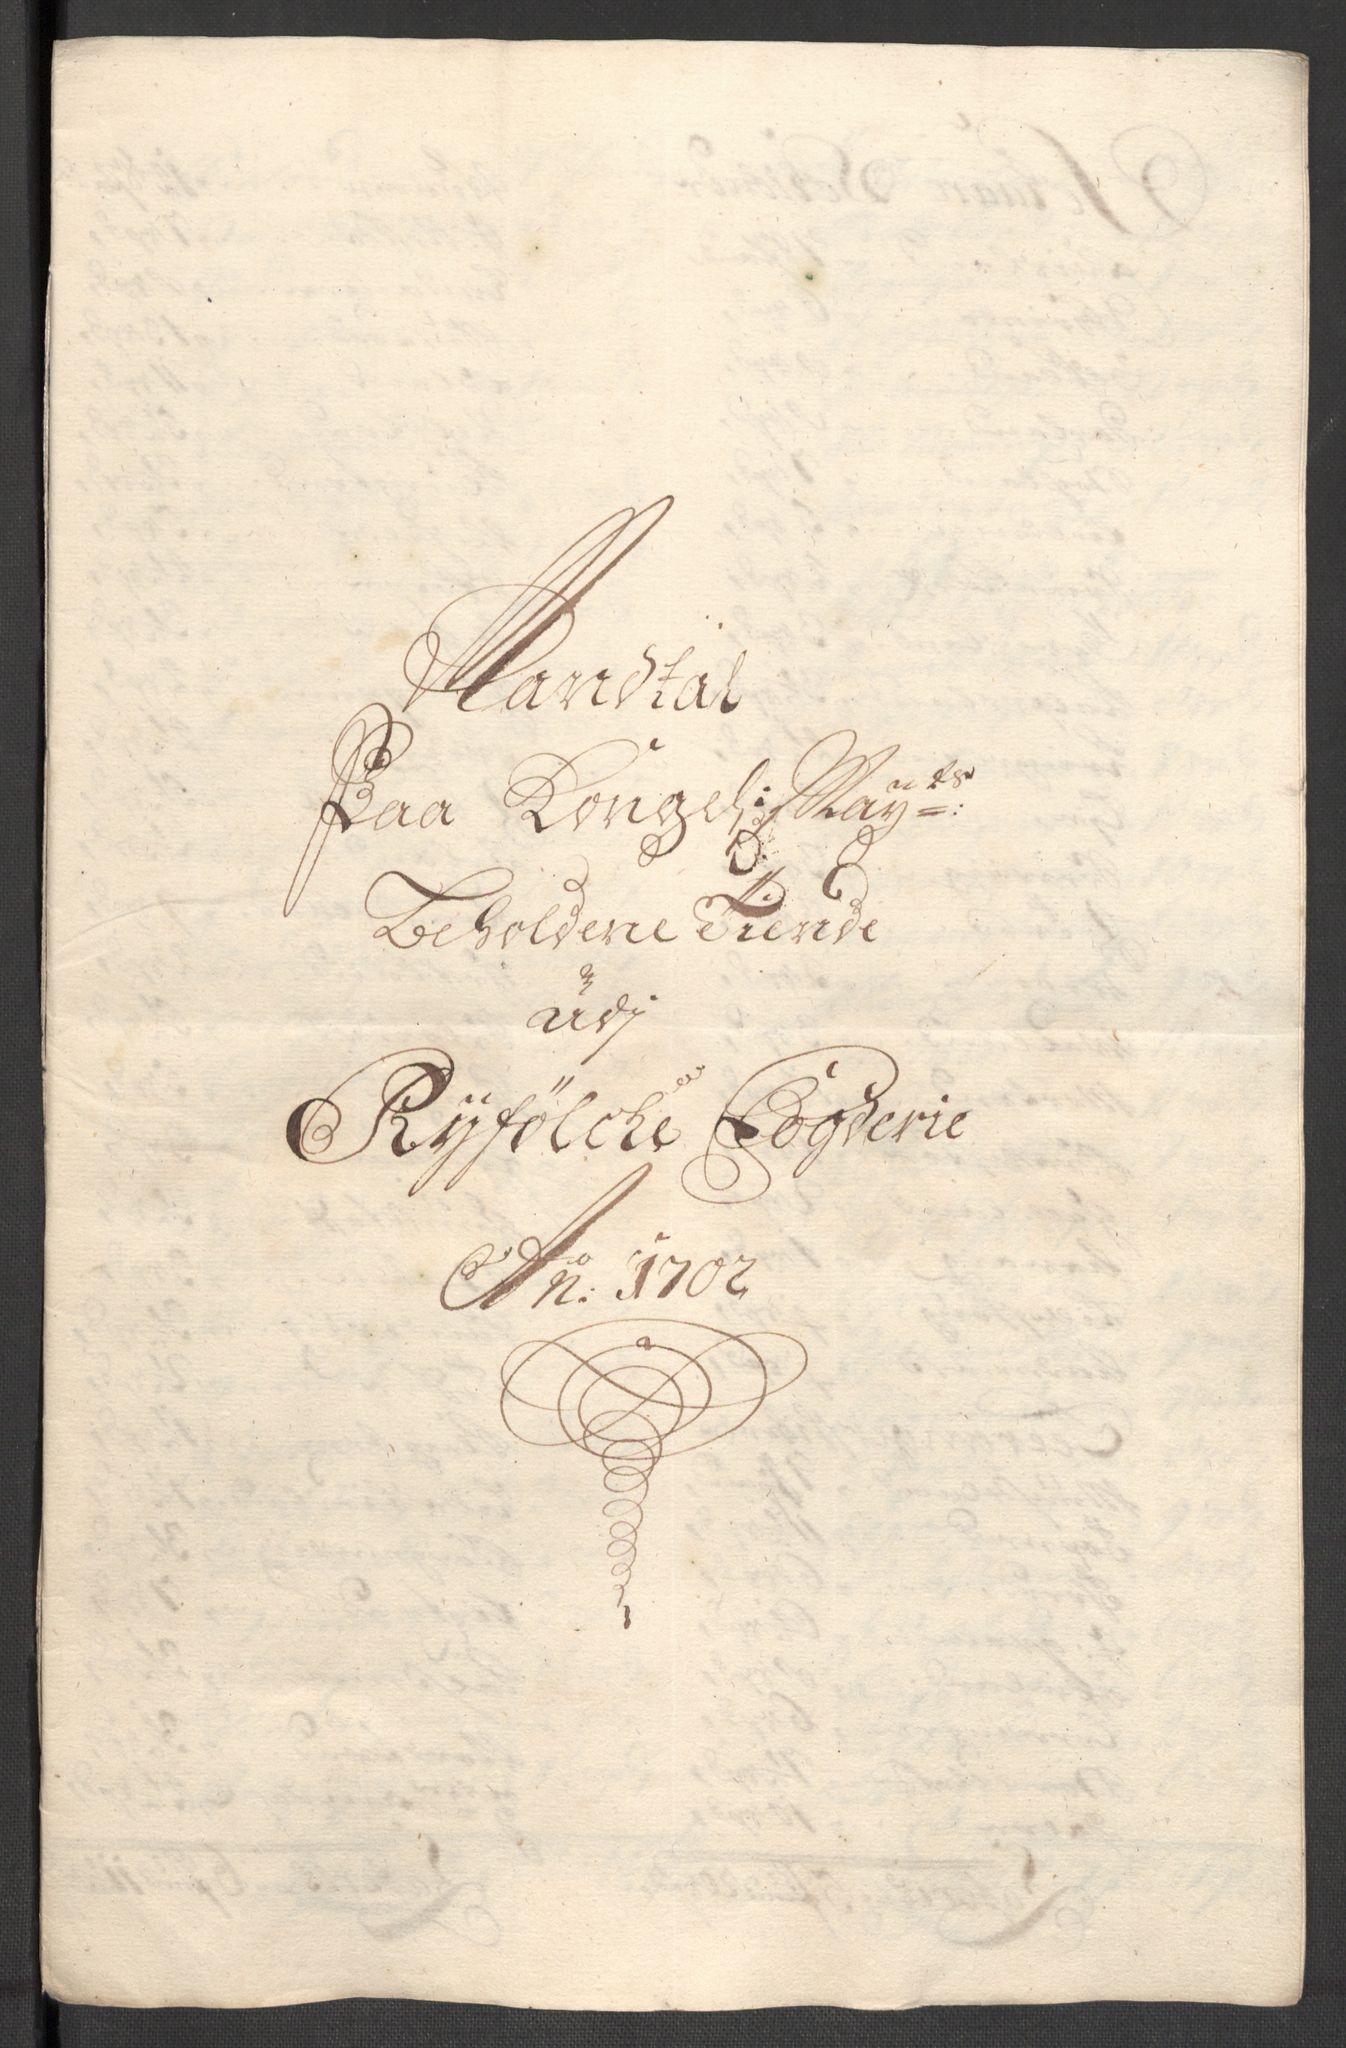 Mandtal
Paa Kongel: Mayts:
Beholdene Tiende
udj
Ryfölche Fogderie
Ano: 1702